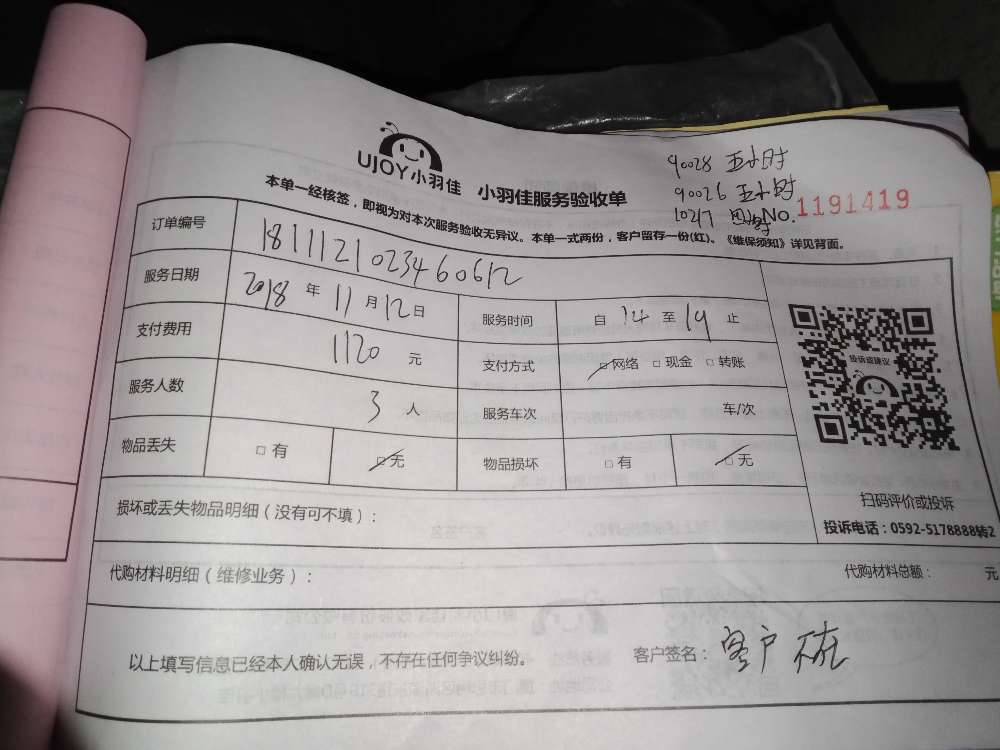 90028 五小时
90026 五小时
UJOY小羽佳 小羽佳服务验收单
NO.1191419
本单一经核签，即视为对本次服务验收无异议。本单一式两份，客户留存一份(红)。《维保须知》详见背面。
订单编号 1811121023460612
服务日期 2018 年 11 月 12 日 服务时间 自 14 至 19 止
支付费用 1120 元 支付方式 □网络 □现金 □转账
服务人数 3 人 服务车次 车/次
物品丢失 □有 □无 物品损坏 □有 □无
投诉或建议
扫码评价或投诉
投诉电话：0592-5178888转2
损坏或丢失物品明细（没有可不填）：
代购材料明细（维修业务）： 代购材料总额： 元
以上填写信息已经本人确认无误，不存在任何争议纠纷。 客户签名：客户